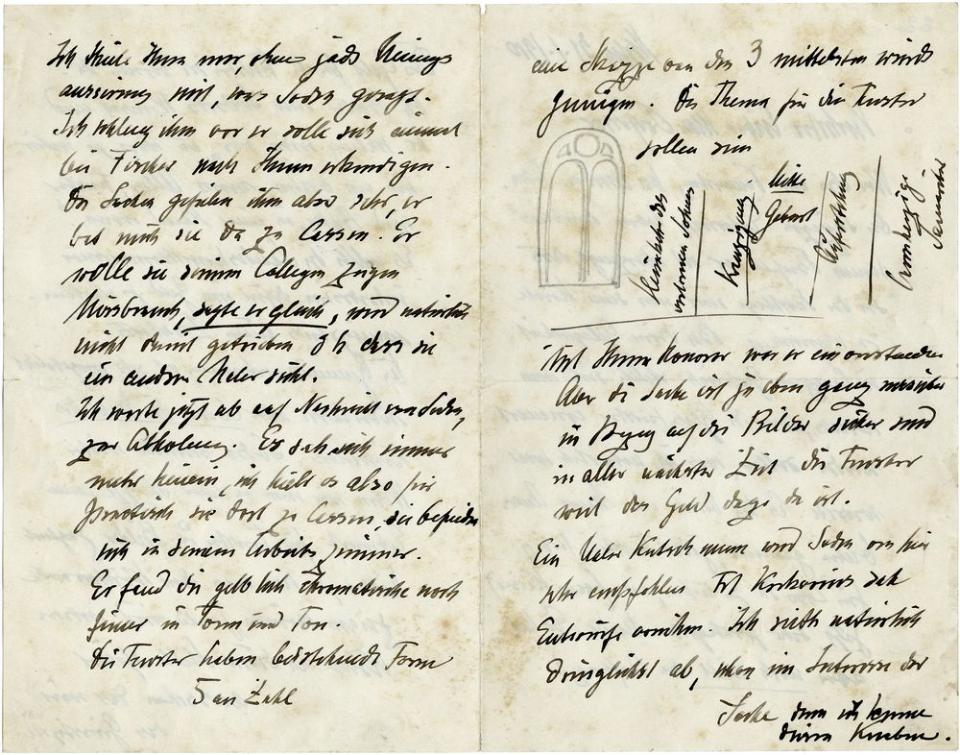 Ich teile Ihnen nur, ohne jede Meinungs
äusserung mit, was Soden gesagt.
Ich schlug ihm vor er solle sich einmal
bei Fischer nach Ihnen erkundigen.
Die Sachen gefielen ihm also sehr, er
bat mich sie da zu lassen. Er
wolle sie seinem Collegen zeigen
Missbrauch, sagte er gleich, wird natürlich
nicht damit getrieben d h dass sie
ein anderer Maler sieht.
Ich warte jetzt ab auf Nachricht von Soden,
zur Abholung. Er sah sich immer
mehr hinein, ich hielt es also für
practisch sie dort zu lassen, sie befinden
sich in seinem Arbeitszimmer.
Er fand die gelblich chromatische noch
feiner in Form und Ton.
Die Fenster haben beistehende Form
5 an Zahl
eine Skizze von den 3 mittelsten würde
genügen. Die Thema für die Fenster
sollen sein
Heimkehr des
verlorenen Sohnes
Kreuzigung
Mitte
Geburt
Auferstehung
Barmherzige
Samariter
Mit Ihrem Honorar war er einverstanden
Aber die Sache ist ja eben ganz
in Bezug auf die Bilder sicher sind
in aller nächster Zeit die Fenster
weil das Geld dazu da ist.
Ein Maler Kutschmann wird Soden von hier
sehr empfohlen hat
Entwürfe Ich riet natürlich
dringlichst ab, schon im Interesse der
Sache denn ich kenne
diesen Knaben.